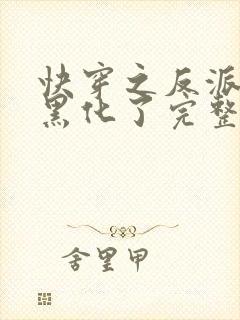 快穿之反派
黑化了完整
舍里甲